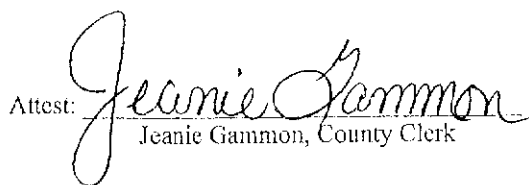 Attest: Jeanie Gammon
Jeanie Gammon, County Clerk